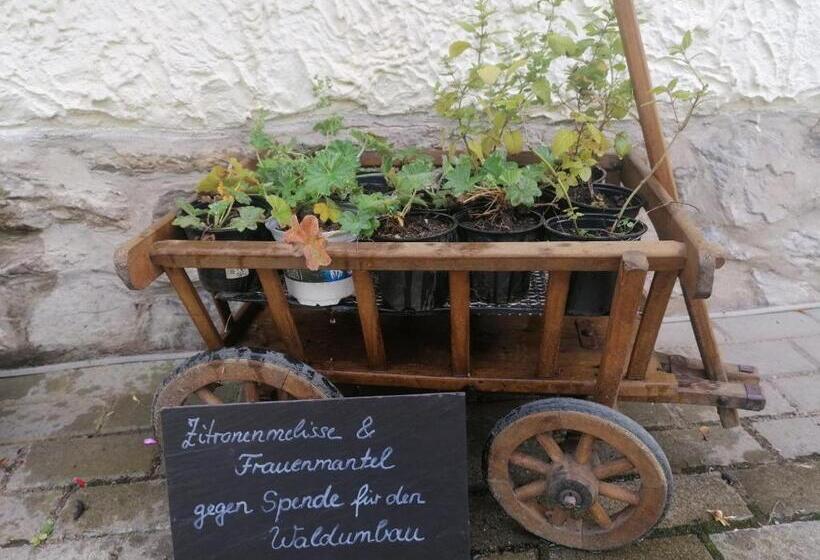 Zitronenmelisse &
Frauenmantel
gegen Spende für den
Waldumbau